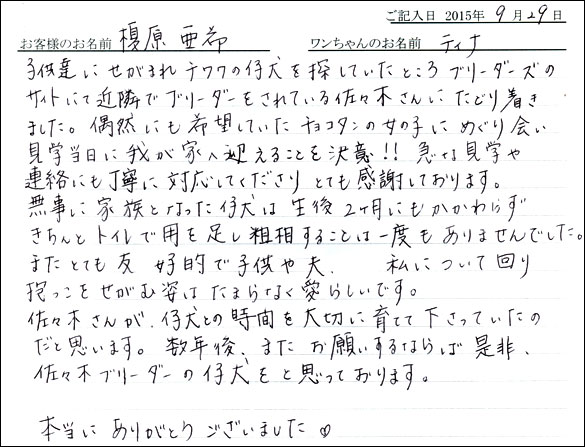 ご記入日 2015年 9月29日
お客様のお名前 榎原 亜希 ワンちゃんのお名前 ティナ
子供達にせがまれ チワワの仔犬を探していたところ ブリーダーズの
サイトにて近隣でブリーダーをされている佐々木さんに たどり着き
ました。偶然にも希望していた チョコタンの女の子に めぐり会い
見学当日に我が家へ迎えることを決意!! 急な見学や
連絡にも丁寧に対応してくださり とても感謝しております。
無事に家族となった仔犬は 生後2ヶ月にもかかわらず
きちんとトイレで用を足し 粗相することは一度もありませんでした。
またとても友 好的で子供や夫、 私について回り
抱っこをせがむ姿は たまらなく愛らしいです。
佐々木さんが、仔犬との時間を大切に育てて下さっていたの
だと思います。数年後、また お願いするならば 是非、
佐々木ブリーダーの仔犬をと思っております。
本当に ありがとう ございました♡